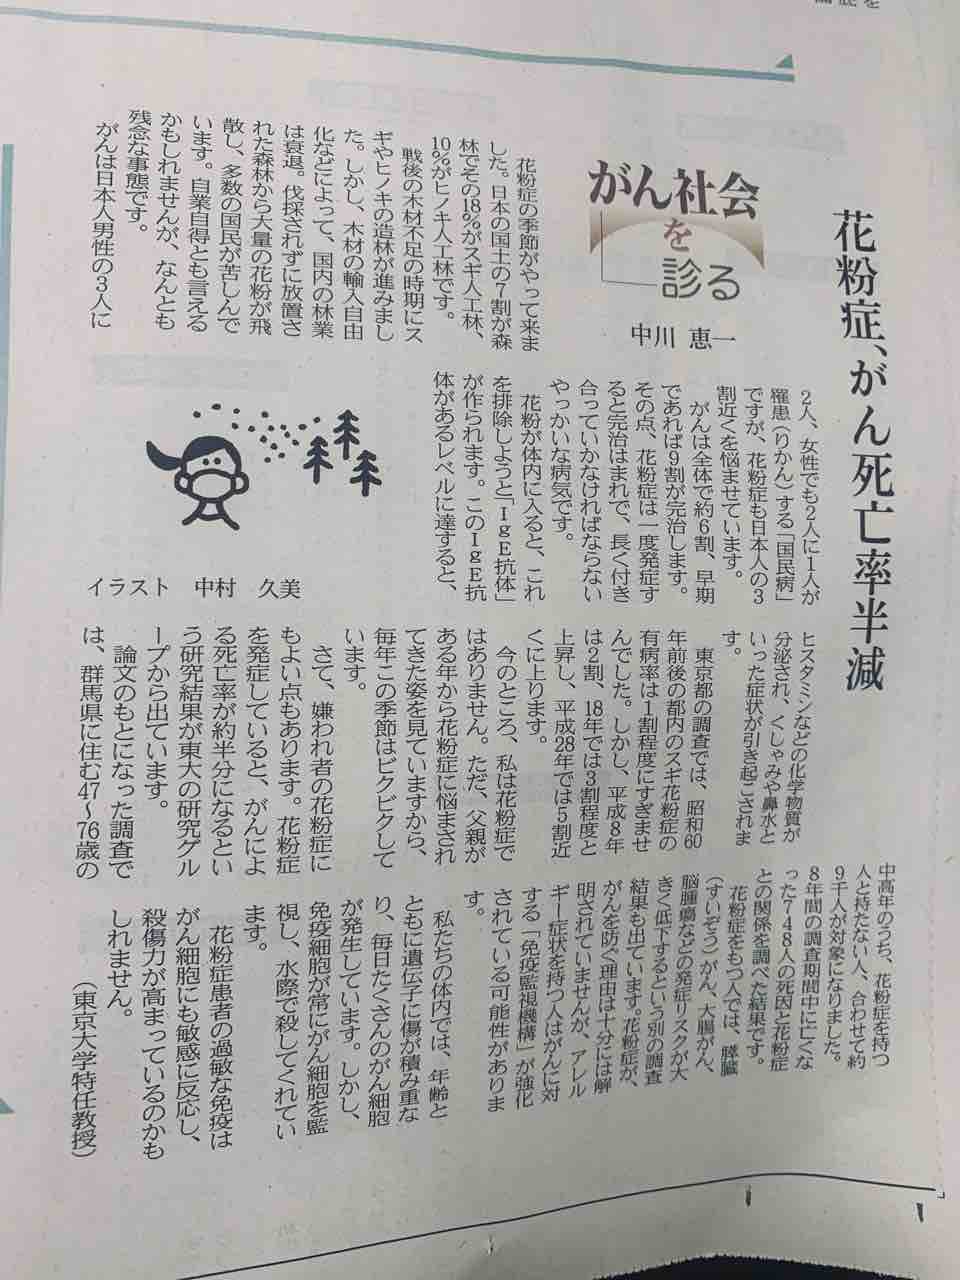 花粉症、がん死亡率半減
がん社会
を
診る
中川 恵一
花粉症の季節がやって来ま
した。日本の国土の7割が森
林でその18%がスギ人工林、
10%がヒノキ人工林です。
戦後の木材不足の時期にス
ギやヒノキの造林が進みまし
た。しかし、木材の輸入自由
化などによって、国内の林業
は衰退。伐採されずに放置さ
れた森林から大量の花粉が飛
散し、多数の国民が苦しんで
います。自業自得とも言える
かもしれませんが、なんとも
残念な事態です。
がんは日本人男性の3人に
2人、女性でも2人に1人が
罹患(りかん)する「国民病」
ですが、花粉症も日本人の3
割近くを悩ませています。
がんは全体で約6割、早期
であれば9割が完治します。
その点、花粉症は一度発症す
ると完治はまれで、長く付き
合っていかなければならない
やっかいな病気です。
花粉が体内に入ると、これ
を排除しようと「IgE抗体」
が作られます。このIgE抗
体があるレベルに達すると、
ヒスタミンなどの化学物質が
分泌され、くしゃみや鼻水と
いった症状が引き起こされま
す。
東京都の調査では、昭和60
年前後の都内のスギ花粉症の
有病率は1割程度にすぎませ
んでした。しかし、平成8年
は2割、18年では3割程度と
上昇し、平成28年では5割近
くに上ります。
今のところ、私は花粉症で
はありません。ただ、父親が
ある年から花粉症に悩まされ
てきた姿を見ていますから、
毎年この季節はビクビクして
います。
さて、嫌われ者の花粉症に
もよい点もあります。花粉症
を発症していると、がんによ
る死亡率が約半分になるとい
う研究結果が東大の研究グル
ープから出ています。
論文のもとになった調査で
は、群馬県に住む47〜76歳の
中高年のうち、花粉症を持つ
人と持たない人、合わせて約
9千人が対象になりました。
8年間の調査期間中に亡くな
った748人の死因と花粉症
との関係を調べた結果です。
花粉症をもつ人では、膵臓
(すいぞう)がん、大腸がん、
脳腫瘍などの発症リスクが大
きく低下するという別の調査
結果も出ています。花粉症が、
がんを防ぐ理由は十分には解
明されていませんが、アレル
ギー症状を持つ人はがんに対
する「免疫監視機構」が強化
されている可能性がありま
す。
私たちの体内では、年齢と
ともに遺伝子に傷が積み重な
り、毎日たくさんのがん細胞
が発生しています。しかし、
免疫細胞が常にがん細胞を監
視し、水際で殺してくれてい
ます。
花粉症患者の過敏な免疫は
がん細胞にも敏感に反応し、
殺傷力が高まっているのかも
しれません。
(東京大学特任教授)
イラスト 中村 久美